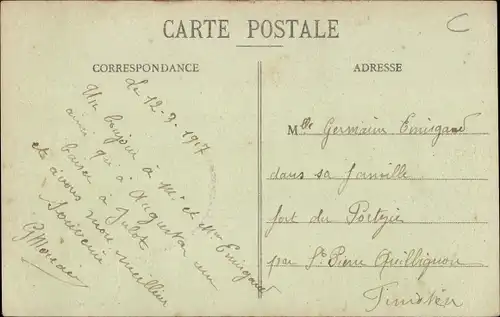 CARTE POSTALE
C
CORRESPONDANCE
ADRESSE
Le 12-3-1917
Un bonjour à Mr et Mme Émisgand
ainsi qu'à Augustan un
baiser à Julot
et à vous mon meilleur
souvenir
GMoreau
Mlle Germaine Émisgand
dans sa famille
fort du Portzic
par St Pierre Quillignon
Finistère